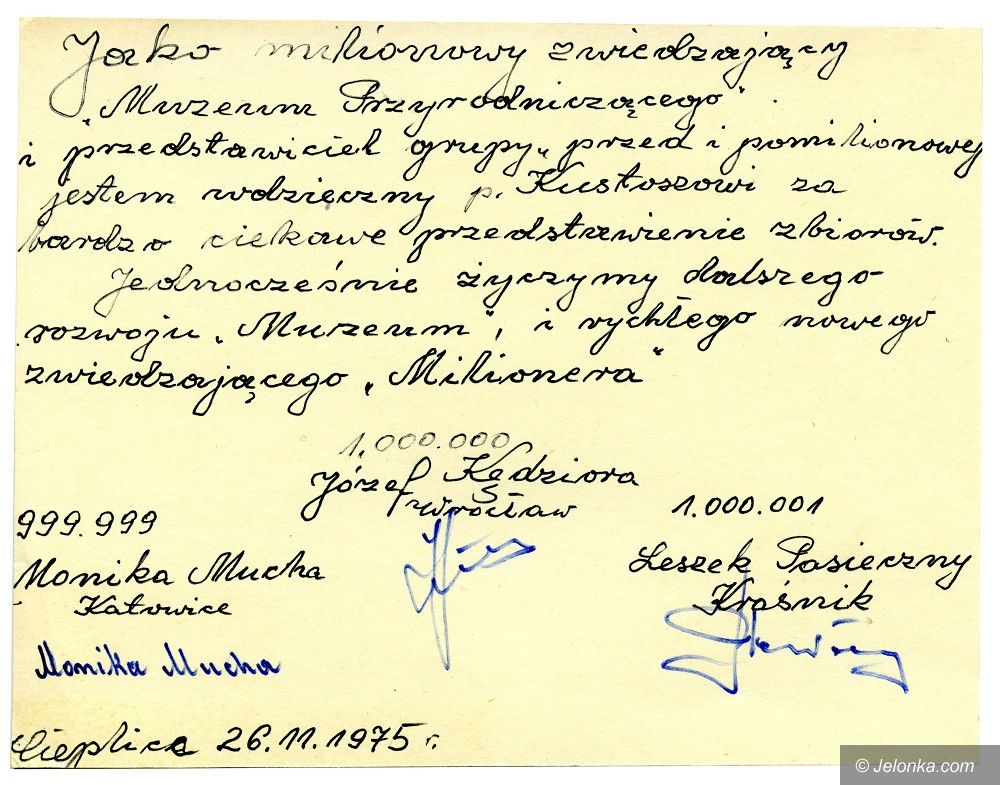 Jako milionowy zwiedzający
"Muzeum Przyrodniczącego".
i przedstawiciel grupy „przed i pomilionowej
jestem wdzięczny p. Kustoszowi za
bardzo ciekawe przedstawienie zbiorów.
Jednocześnie życzymy dalszego
rozwoju „Muzeum", i rychłego nowego
zwiedzającego „Milionera"
1.000.000
Józef Kędziora
Wrocław
999.999
Monika Mucha
Katowice
Monika Mucha
1.000.001
Leszek Pasieczny
Kraśnik
Cieplice 26.11.1975 r.
© Jelonka.com